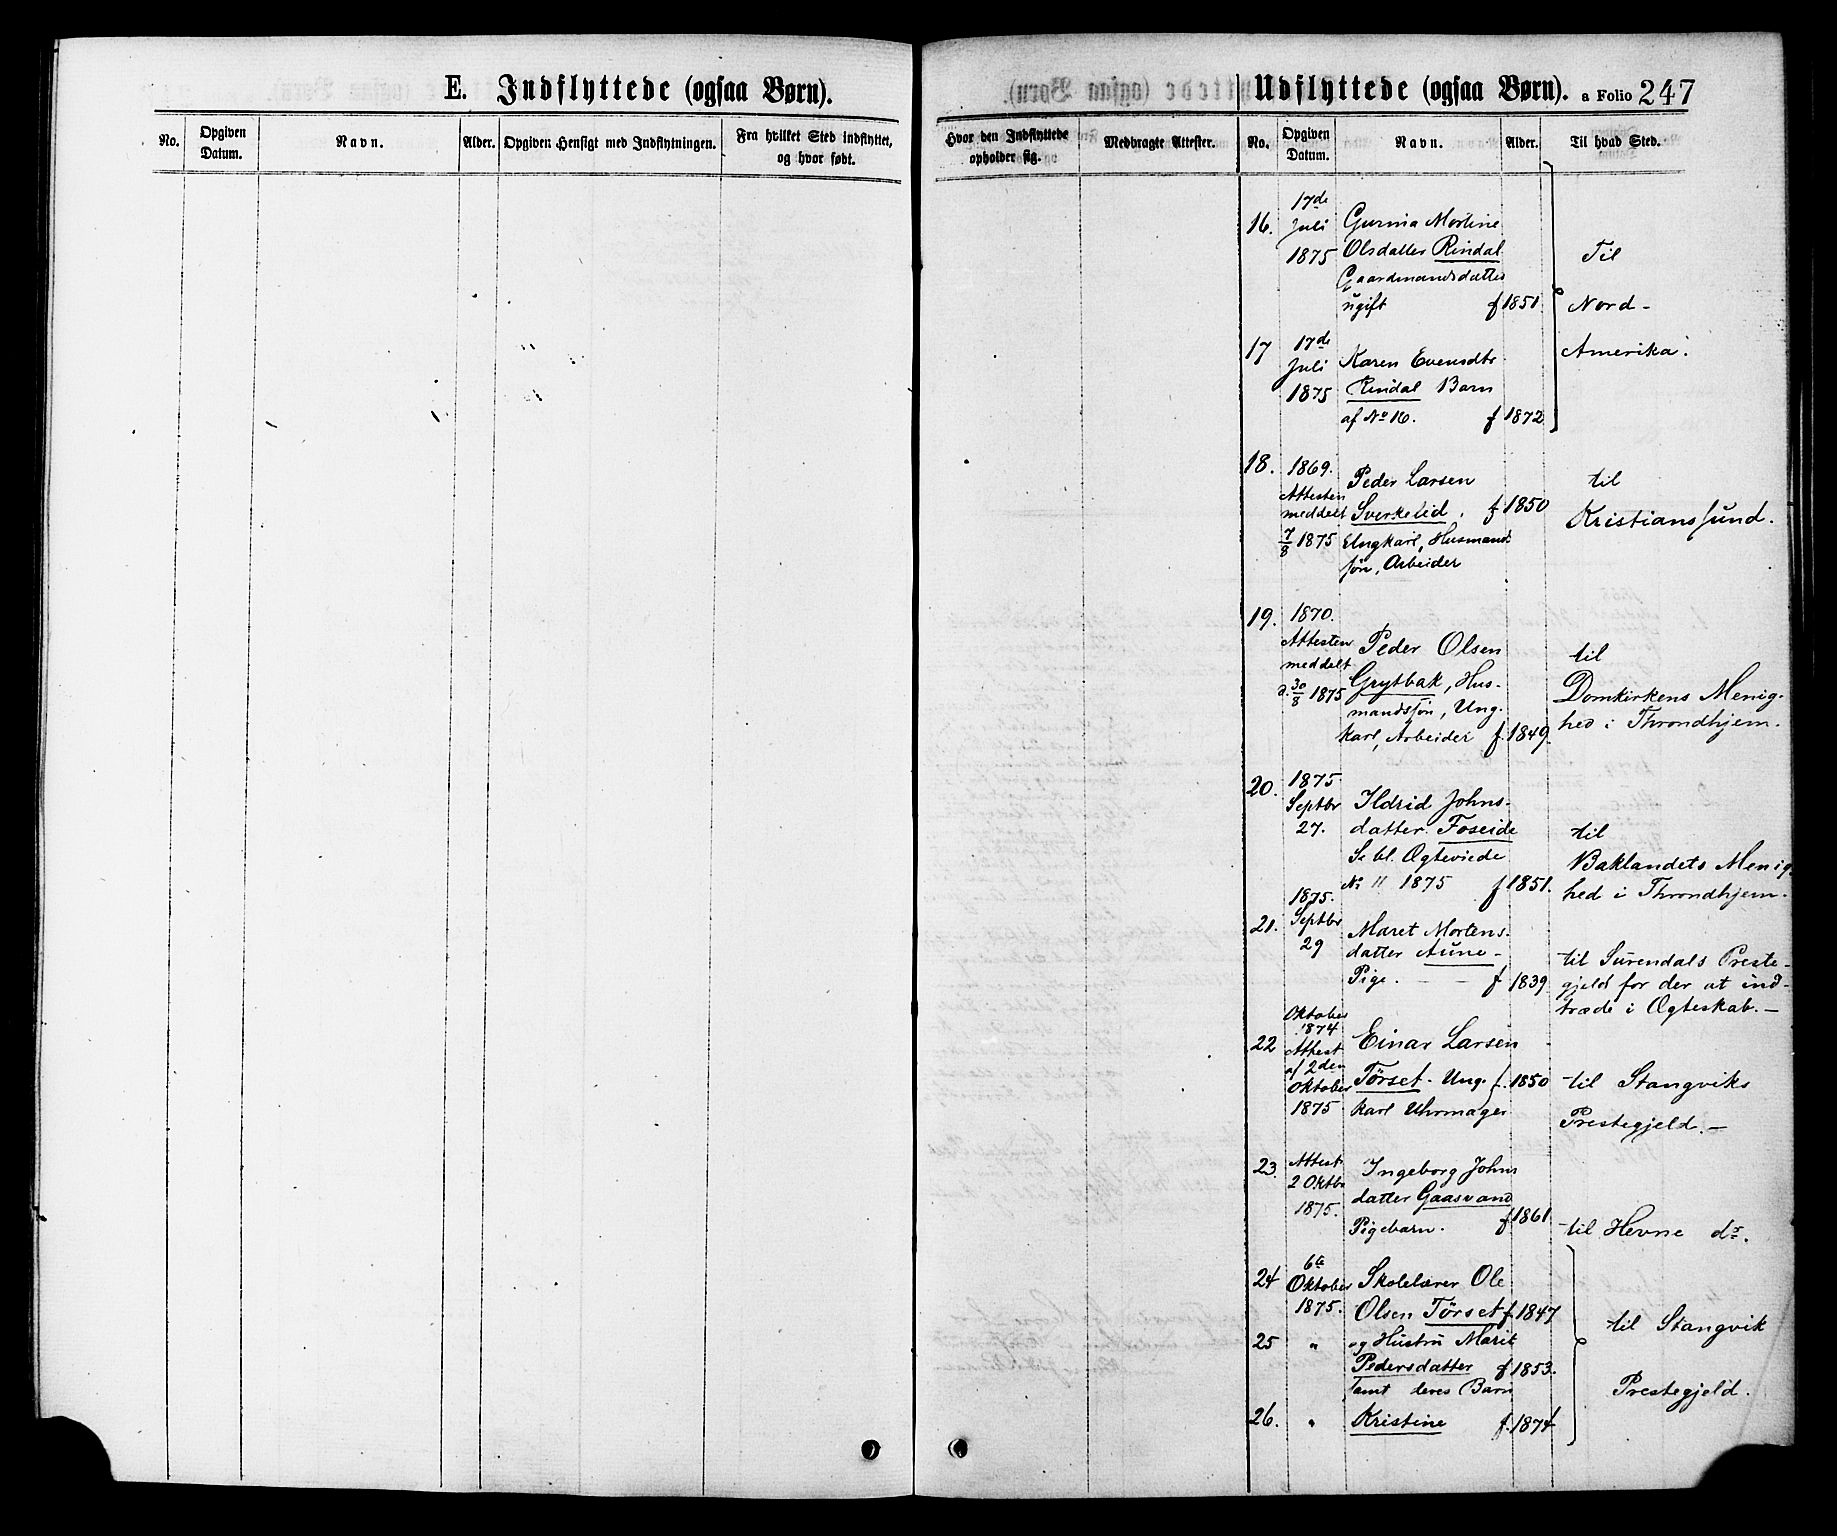 E. Indflyttede (ogsaa Børn).
No.
Opgiven Datum.
Navn.
Alder.
Opgiven Hensigt med Indflytningen.
Fra hvilket Sted indflyttet, og hvor født.
Udflyttede (ogsaa Børn). a Folio 247
Hvor den Indflyttede opholder sig.
Medbragte Attester.
No.
Opgiven Datum.
Navn.
Alder.
Til hvad Sted.
16. 17de Juli 1875
Gurina Martine
Olsdatter Rindal
Gaardmandsdatter
ugift f 1851.
Til
Nord-
Amerika.
17 17de Juli 1875
Karen Evensdtr
Rindal Barn
af No 16. f 1872
18. 1869. Attesten meddelt 7/8 1875
Peder Larsen
Sverkelid. f 1850
Ungkarl, Husmand-
søn, Arbeider
til
Kristiansund.
19. 1870. Attesten meddelt d. 30/8 1875
Peder Olsen
Grytbak, Hus-
mandssøn, Ung-
karl, Arbeider f. 1849.
til
Domkirkens Menig-
hed i Throndhjem.
20. 1875 Septbr 27.
Ildrid Johns-
datter Foseide
Se bl. Ægteviede
No 11 1875 f 1851.
til
Baklandets Menig-
hed i Throndhjem.
21. 1875. Septbr 29
Maret Mortens-
datter Aune -
Pige. - - f 1839.
til Surendals Preste-
gjeld for der at ind-
træde i Ægteskab. -
22 Oktober 1874 Attest af 2den Oktober 1875
Einar Larsen
Tørset. Ung- f. 1850
karl Uhrmager
til Stangviks
Prestegjeld. -
23. Attest 2 Oktbr 1875.
Ingeborg Johns
datter Gaasvand
Pigebarn. f 1861.
til Hevne do.
24 6te Oktober 1875.
Skolelærer Ole
Olsen Tørset f 1847
til Stangvik
Prestegjeld.
25 "
og Hustru Marit
Pedersdatter f 1853.
samt deres Barn
26. "
Kristine f. 1874